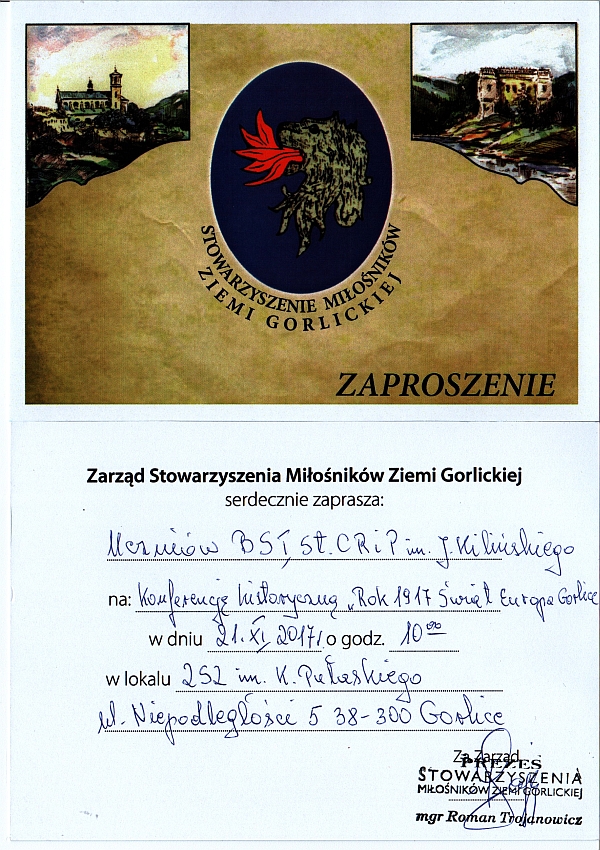 STOWARZYSZENIE MIŁOŚNIKÓW
ZIEMI GORLICKIEJ
ZAPROSZENIE
Zarząd Stowarzyszenia Miłośników Ziemi Gorlickiej
serdecznie zaprasza:
Uczniów BSI St. CRiP im. J. Kilińskiego
na: Konferencję historyczną „Rok 1917 Świat Europa Gorlice
w dniu 21.XI 2017r o godz. 10⁰⁰
w lokalu ZSZ im. K. Pułaskiego
ul. Niepodległości 5 38-300 Gorlice
Za Zarząd
PREZES
STOWARZYSZENIA
MIŁOŚNIKÓW ZIEMI GORLICKIEJ
mgr Roman Trojanowicz